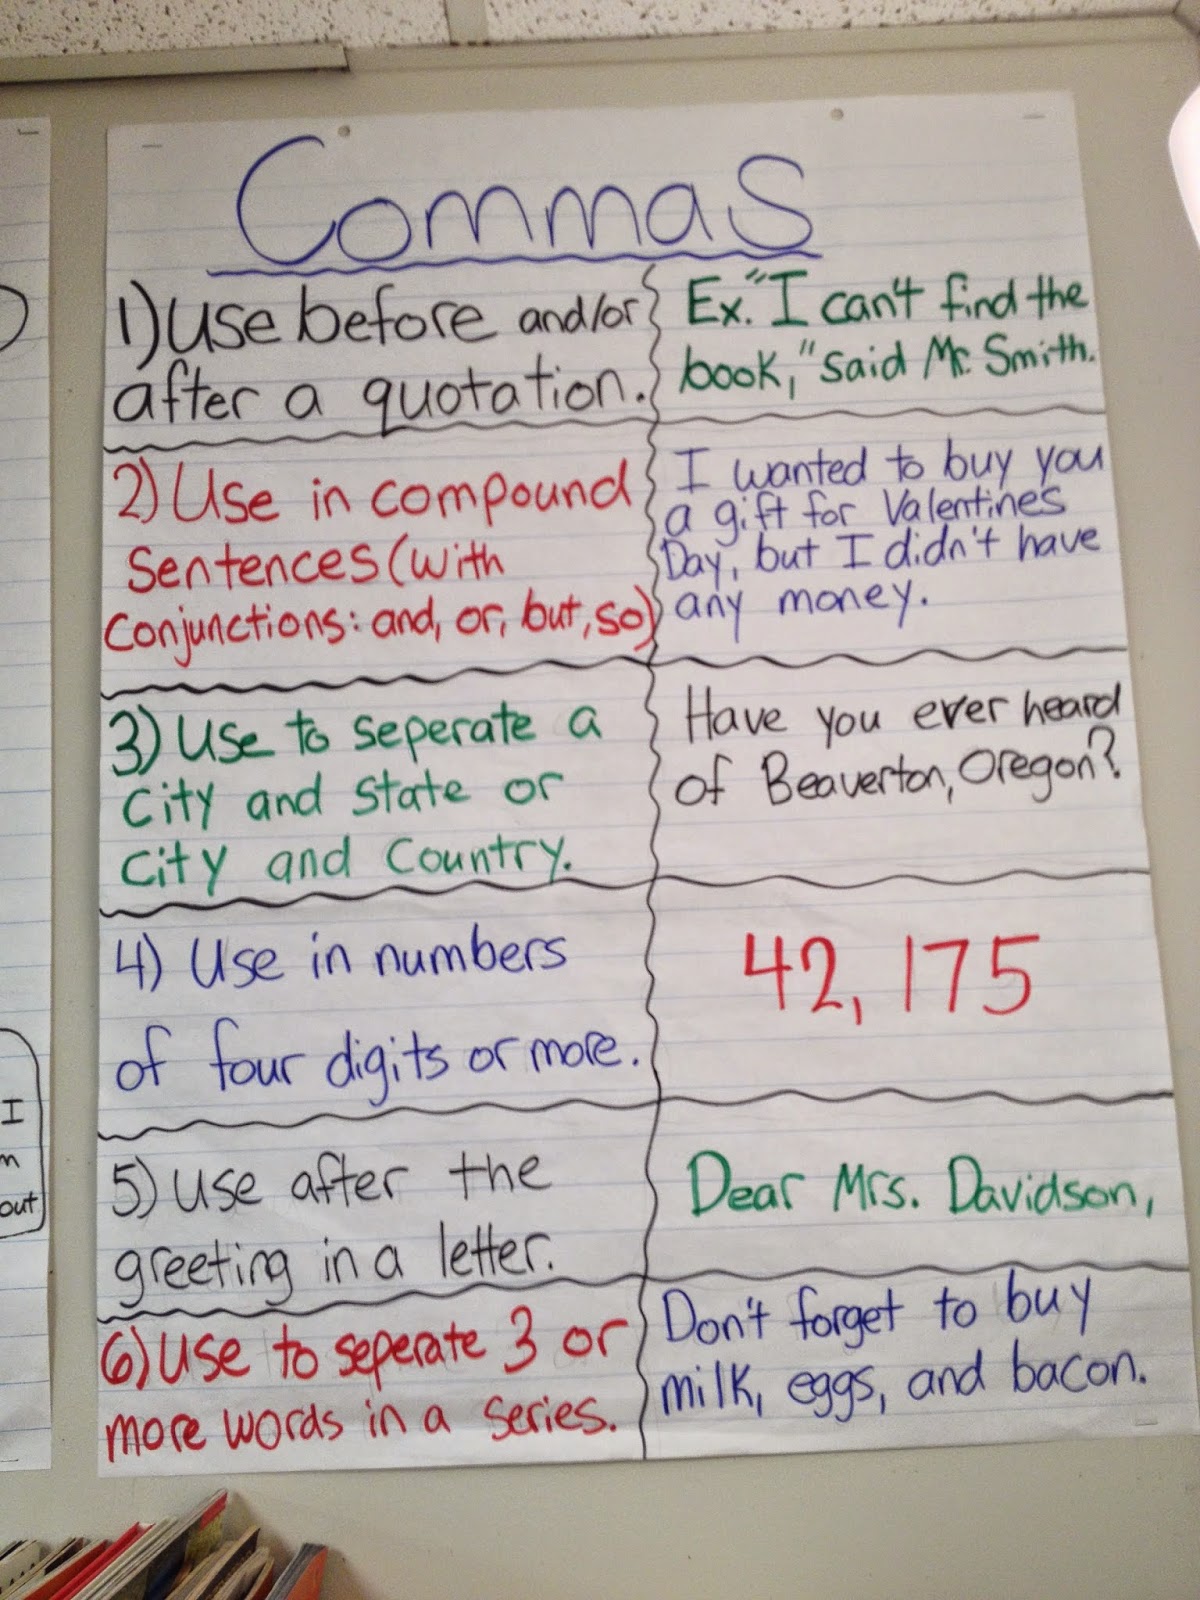 Commas
1) Use before and/or
after a quotation.
Ex. "I can't find the
book," said Mr. Smith.
2) Use in compound
sentences (with
conjunctions: and, or, but, so)
I wanted to buy you
a gift for Valentines
Day, but I didn't have
any money.
3) Use to seperate a
city and state or
city and country.
Have you ever heard
of Beaverton, Oregon?
4) Use in numbers
of four digits or more.
42,175
5) Use after the
greeting in a letter.
Dear Mrs. Davidson,
6) Use to seperate 3 or
more words in a series.
Don't forget to buy
milk, eggs, and bacon.
I
out